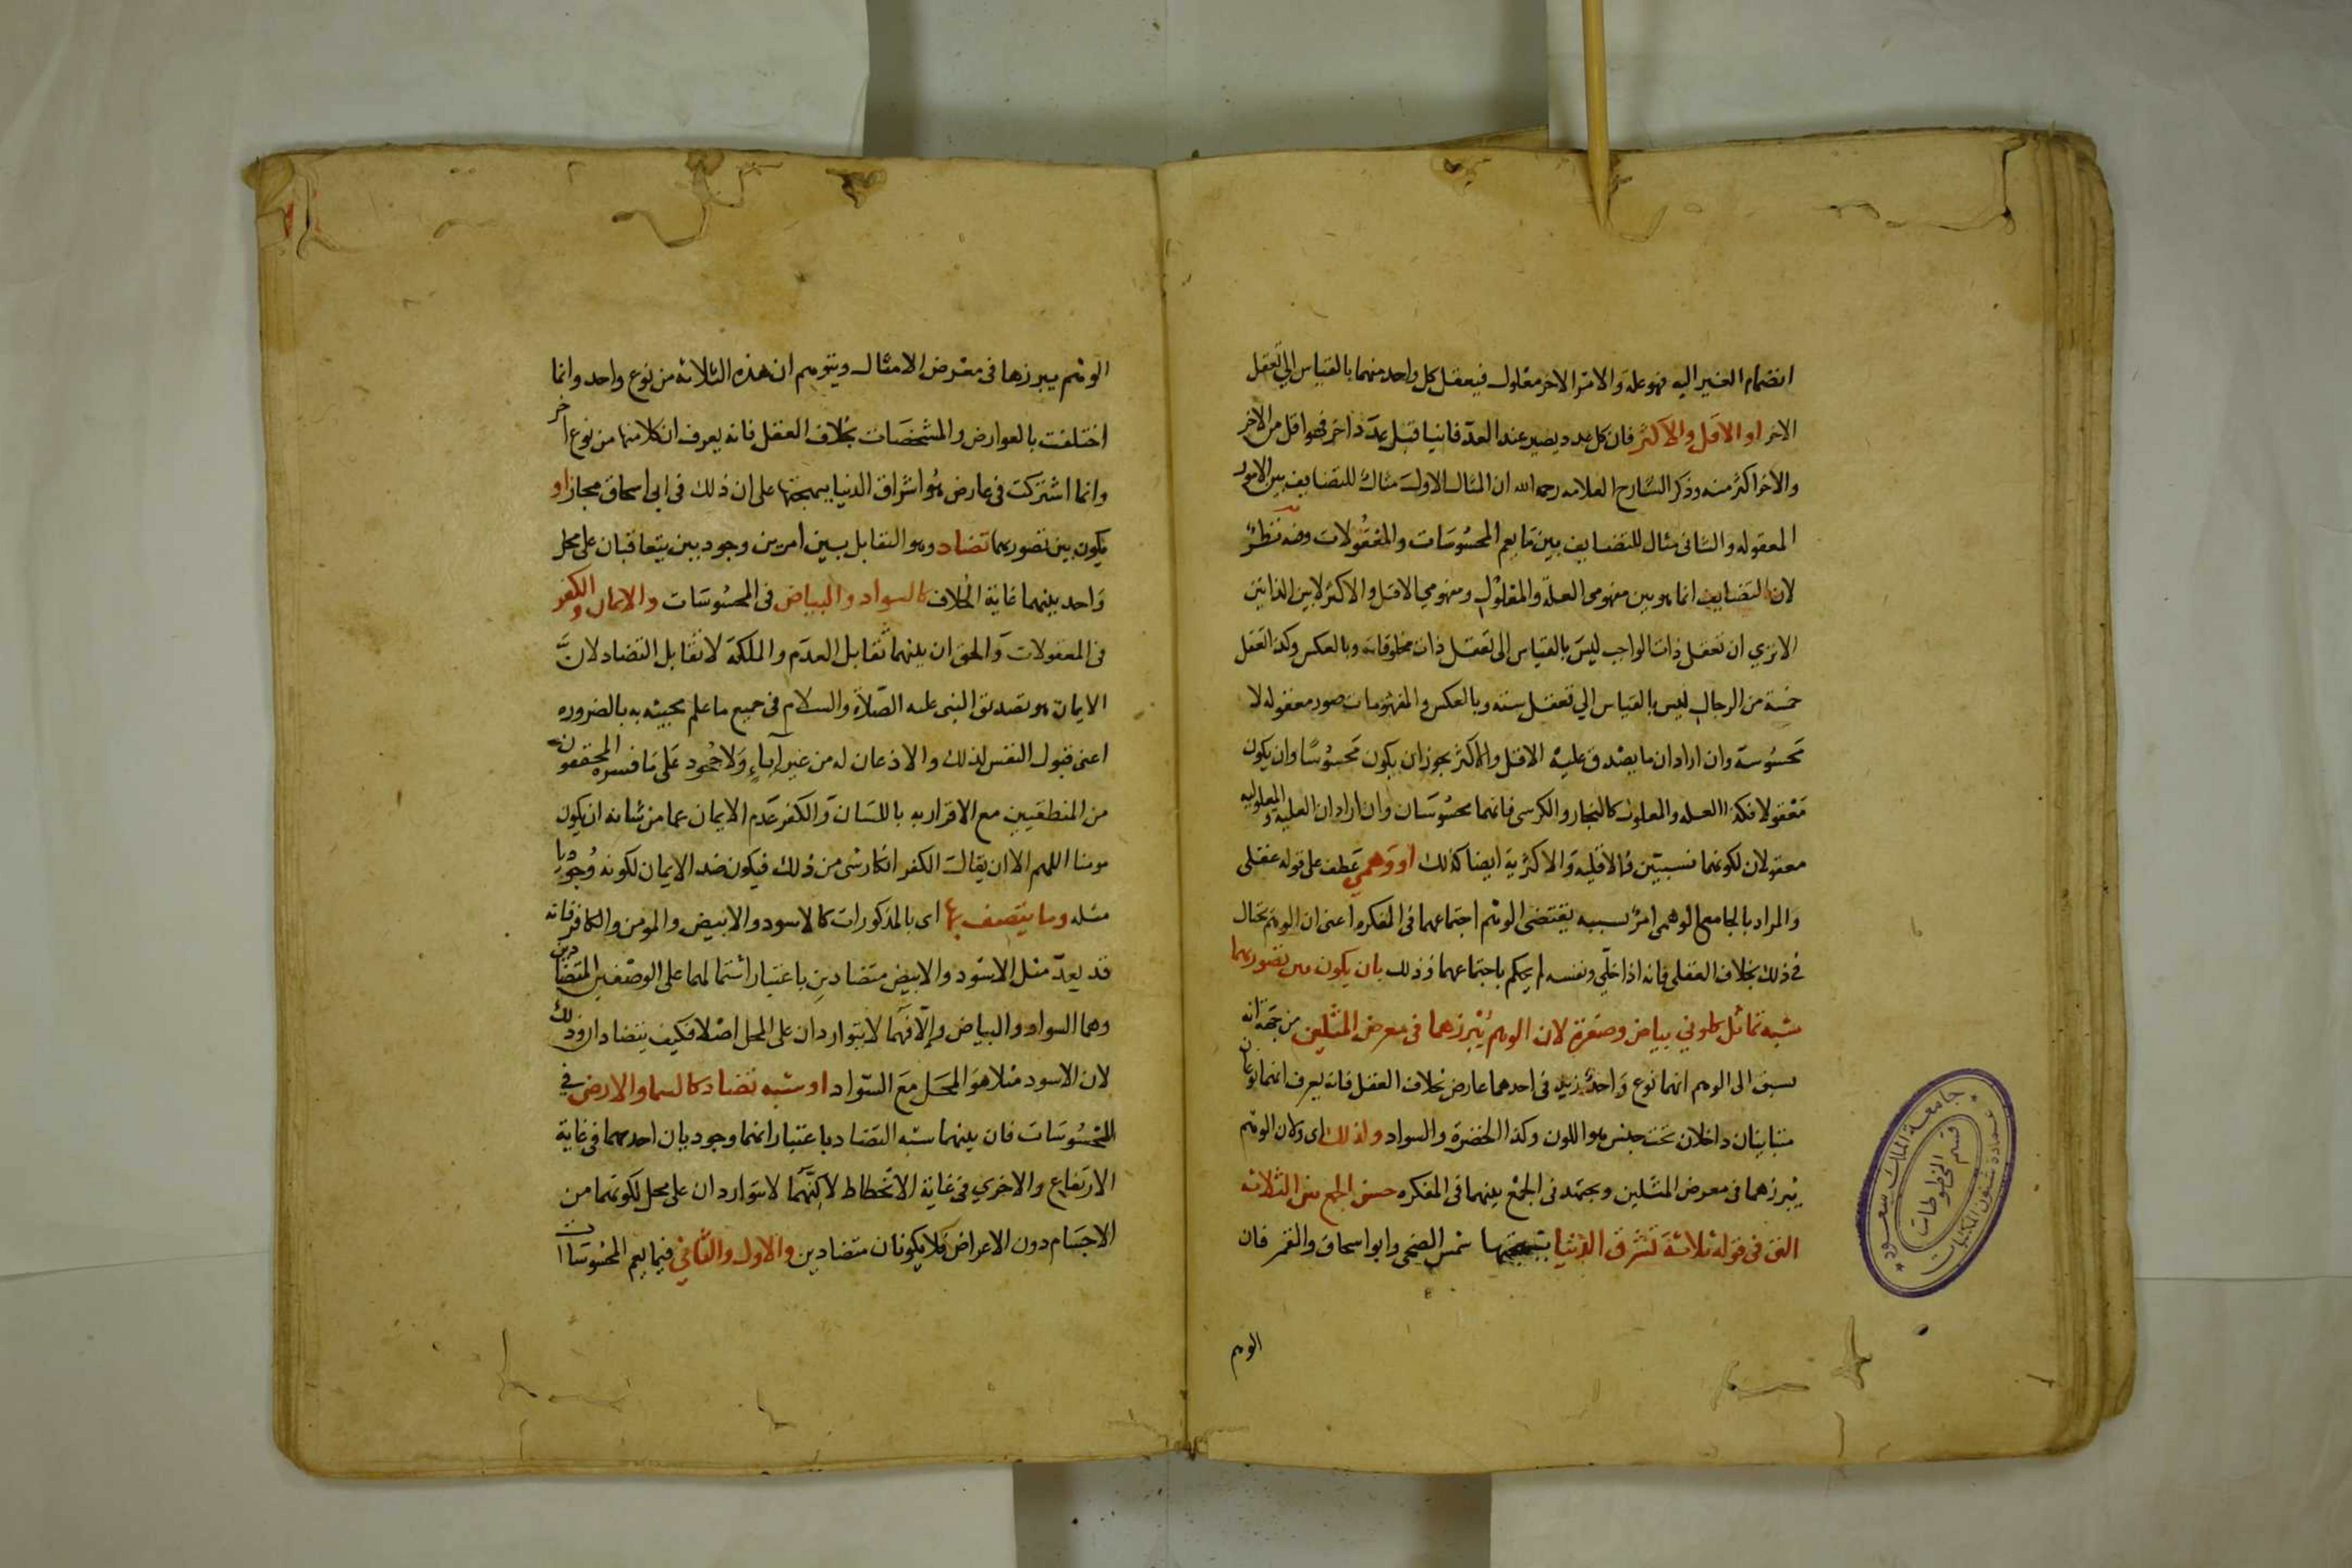 انضمام الغير اليه فهو علة والامر الاخر معلول فيعقل كل واحد منهما بالقياس الي تعقل
الاخر او الاقل والاكثر فان كل عدد يصير عند العدّ فانيا قبل عدد اخر فهو اقل من الاخر
والاخر اكثر منه وذكر الشارح العلامه رحمه الله ان المثال الاول مثال للتضايف بين الامور
المعقوله والثانى مثال للتضايف بين ما يعم المحسوسات والمعقولات وفيه نظر
لان التضايف انما هو بين مفهومى العلة والمعلول ومفهومي الاقل والاكثر لا بين الذاتين
الا تري ان تعقل ذات الواجب ليس بالقياس الى تعقل ذات مخلوقاته وبالعكس وكذا تعقل
خمسة من الرجال ليس بالقياس الي تعقل ستة وبالعكس والمفهومات صور معقوله لا
محسوسة وان اراد ان ما يصدق عليه الاقل والاكثر يجوز ان يكون محسوسا وان يكون
معقولا فكذا العله والمعلول كالنجار والكرسى فانهما محسوسان وان اراد ان العليه والمعلوليه
معقولان لكونهما نسبتين فالاقلية والاكثرية ايضا كذلك او وهمي عطف على قوله عقلى
والمراد بالجامع الوهمى امر بسببه يقتضى الوهم اجتماعهما فى المفكره اعنى ان الوهم يحتال
فى ذلك بخلاف العقلى فانه اذا خلّي ونفسه لم يحكم باجتماعهما وذلك بان يكون بين تصوريهما
شبه تماثل كلوني بياض وصفرة لان الوهم يبرزهما فى معرض المثلين من جهة انه
يسبق الى الوهم انهما نوع واحد زيد فى احدهما عارض بخلاف العقل فانه يعرف انهما نوعان
متباينان داخلان تحت جنس هو اللون وكذا الخضرة والسواد ولذلك اى ولان الوهم
يبرزهما فى معرض المثلين ويجتهد فى الجمع بينهما فى المفكره حسن الجمع بين الثلاثه
التى فى قوله ثلاثة تشرق الدنيا ببهجتها شمس الضحى وابو اسحاق والقمر فان
الوهم
الوهم يبرزها فى معرض الامثال ويتوهم ان هذه الثلاثة من نوع واحد وانما
اختلفت بالعوارض والمشخصات بخلاف العقل فانه يعرف ان كلا منها من نوع اخر
وانما اشتركت فى عارض هو اشراق الدنيا ببهجتها على ان ذلك فى ابى اسحاق مجاز او
يكون بين تصوريهما تضاد وهو التقابل بين امرين وجوديين يتعاقبان على محل
واحد بينهما غاية الخلاف كالسواد والبياض فى المحسوسات والايمان والكفر
فى المعقولات والحق ان بينهما تقابل العدم والملكة لا تقابل التضاد لان
الايمان هو تصديق النبى عليه الصلاة والسلام فى جميع ما علم مجيئه به بالضروره
اعنى قبول النفس لذلك والاذعان له من غير اباء ولا جحود على ما فسره المحققون
من المنطقيين مع الاقرار به باللسان والكفر عدم الايمان عما من شانه ان يكون
مومنا اللهم الا ان يقال الكفر انكار شى من ذلك فيكون ضد الايمان لكونه وجوديا
مثله وما يتصف بها اى بالمذكورات كالاسود والابيض والمومن والكافر فانه
قد يعدّ مثل الاسود والابيض متضادين باعتبار اشتمالهما على الوصفين المتضادين
وهما السواد والبياض والا فهما لا يتواردان على المحل اصلا فكيف يتضادان وذلك
لان الاسود مثلا هو المحل مع السواد او شبه تضاد كالسما والارض في
المحسوسات فان بينهما شبه التضاد باعتبار انهما وجوديان احدهما فى غاية
الارتفاع والاخري فى غاية الانحطاط لاكنهما لا يتواردان على محل لكونهما من
الاجسام دون الاعراض فلا يكونان متضادين والاول والثاني فيما يعم المحسوسات
جامعة الملك سعود
قسم المخطوطات
عمادة شئون المكتبات